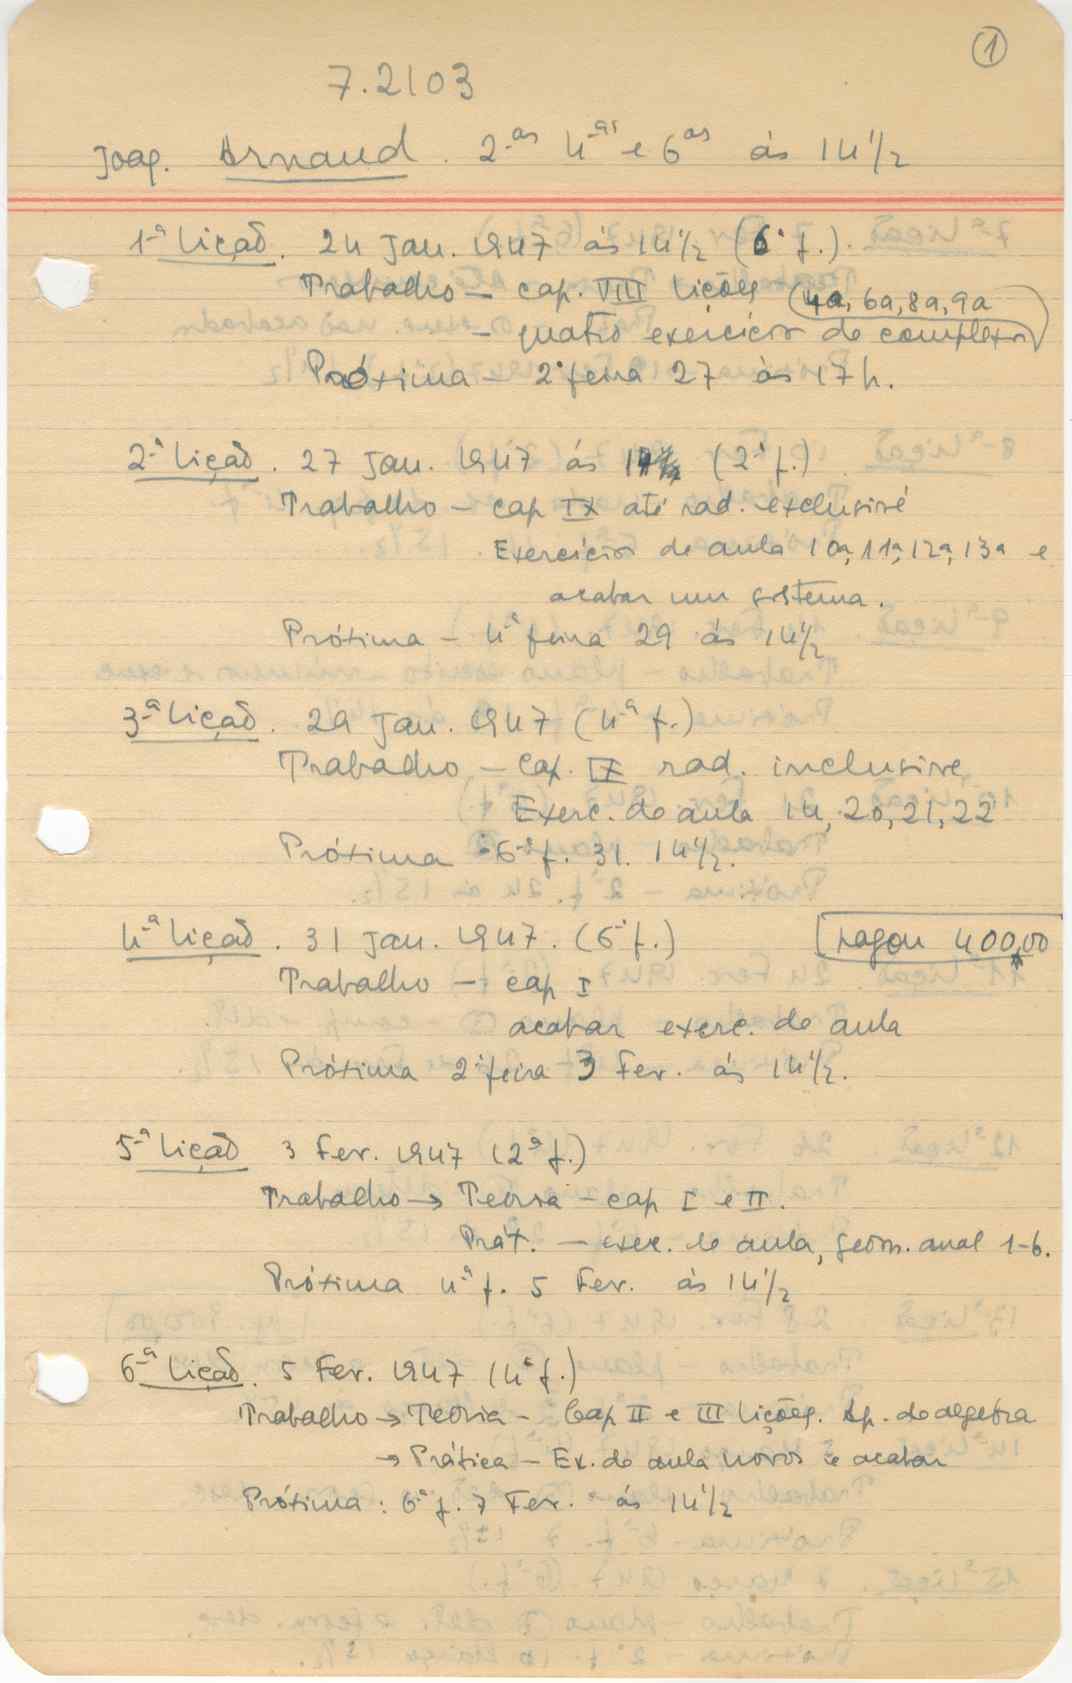 1
7.2103
Joaq. Arnaud. 2.as 4.as e 6as às 14½
1ª lição. 24 Jan. 1947 às 14½ (6ª f.).
Trabalho — cap. VIII lições (4a, 6a, 8a, 9a
— quatro exercícios de complexos)
Próxima — 2ª feira 27 às 17 h.
2ª lição. 27 Jan. 1947 ás (2ª f.)
Trabalho — cap IX até rad. exclusivé
Exercícios de aula 10a, 11a, 12a, 13a e
acabar um sistema.
Próxima — 4ª feira 29 ás 14½
3ª lição. 29 Jan. 1947 (4ª f.)
Trabalho — Cap. IX rad. inclusive
Exerc. de aula 14, 20, 21, 22
Próxima 6ª f. 31. 14½.
4ª lição. 31 Jan. 1947. (6ª f.) pagou 400,00
Trabalho — cap I
acabar exerc. de aula
Próxima 2ª feira 3 Fev. ás 14½.
5ª lição 3 Fev. 1947 (2ª f.)
Trabalho → Teoria — cap I e II.
Prát. — exer. de aula, geom. anal 1-6.
Próxima 4ª f. 5 Fev. às 14½
6ª lição. 5 Fev. 1947 (4ª f.)
Trabalho → Teória — Cap II e III lições. Ap. de algebra
→ Prática — Ex. de aula novos e acabar
Próxima : 6ª f. 7 Fev. ás 14½